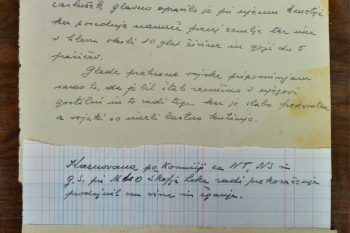 zaslužek. Glavno opravilo je pri njem kmetija
ker poseduje namreč precej zemlje ter ima
v hlevu okoli 10 glav živine in goji do 5
prašičev.
Glede prehrane vojske pripominjam
samo to, da je bil štab
gostilni in to radi tega, ker je slabo
a vojaki so imeli lastno kuhinjo.
Kaznovana po Komisiji za NT, Nš in
g.s. pri MLO Škofja Loka radi prekoračenja
prodajnih cen vina in žganja.